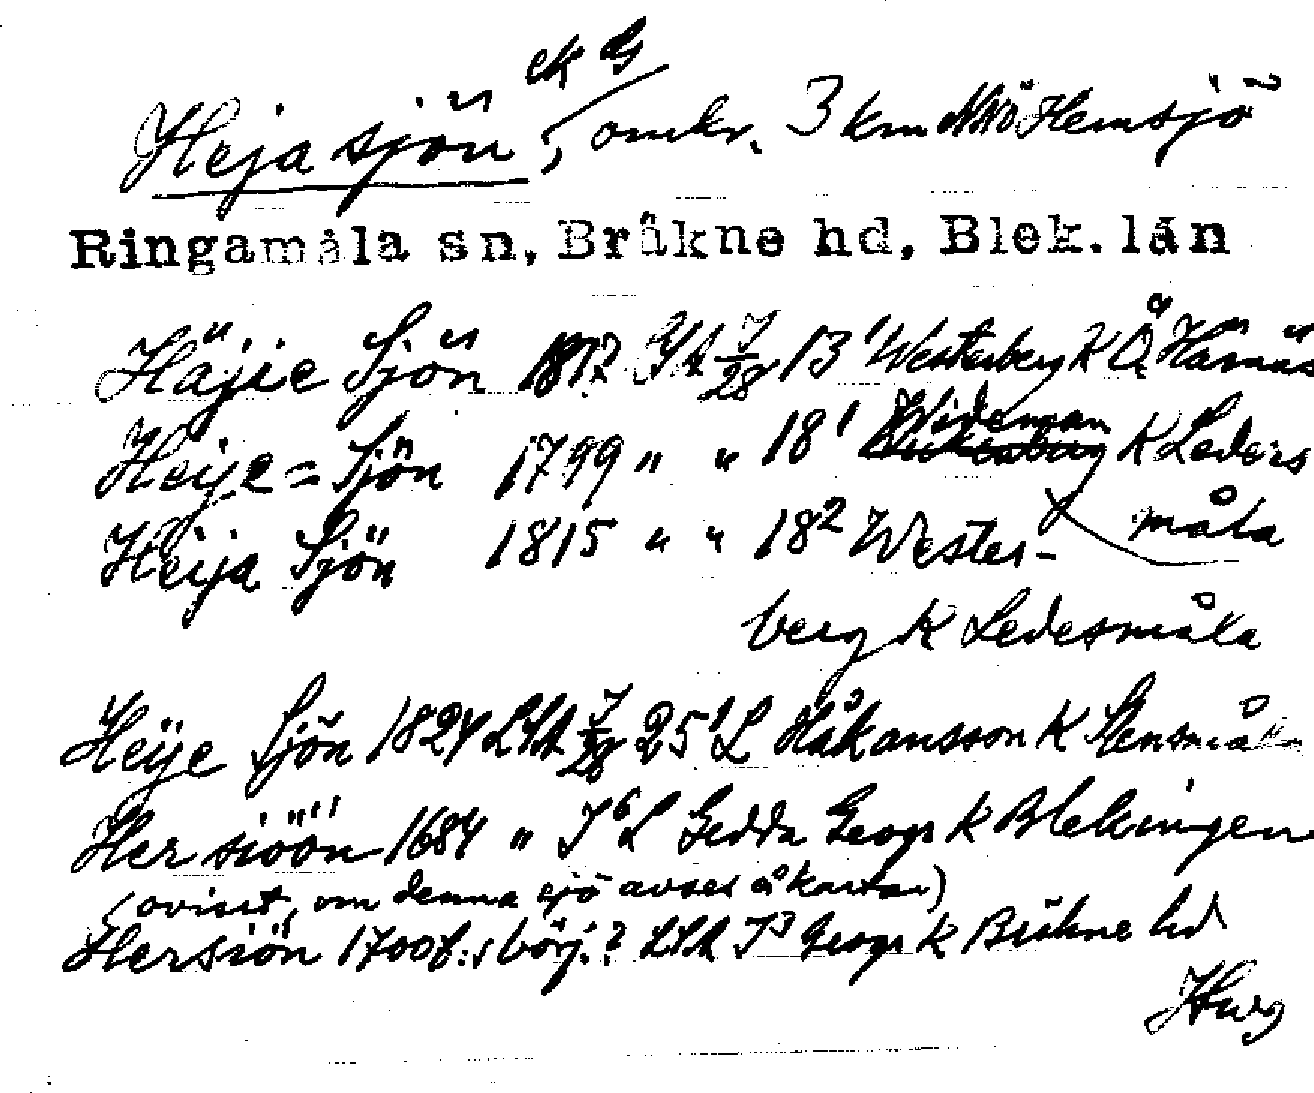 ek G
Hejasjön, omkr. 3 km NNÖ Hemsjö
Ringamåla sn, Bräkne hd, Blek. län
Häjie Sjön 1817 LSA J/28 13¹ Westerberg K Ö Harnäs
Heije=Sjön 1799 " " 18¹ Wideman K Leders
måla
Heija Sjön 1815 " " 18² Wester-
berg K Ledesmåla
Heije Sjön 1824 LSA J/28 25¹ L Håkansson K Stensmåla
Hersiöön 1684 " J⁶ L Gedda Geogr K Blekingen
(ovisst, om denna sjö avses å kartan)
Hersiön 1700t:s börj.? LSA J³ Geogr K Bräkne hd